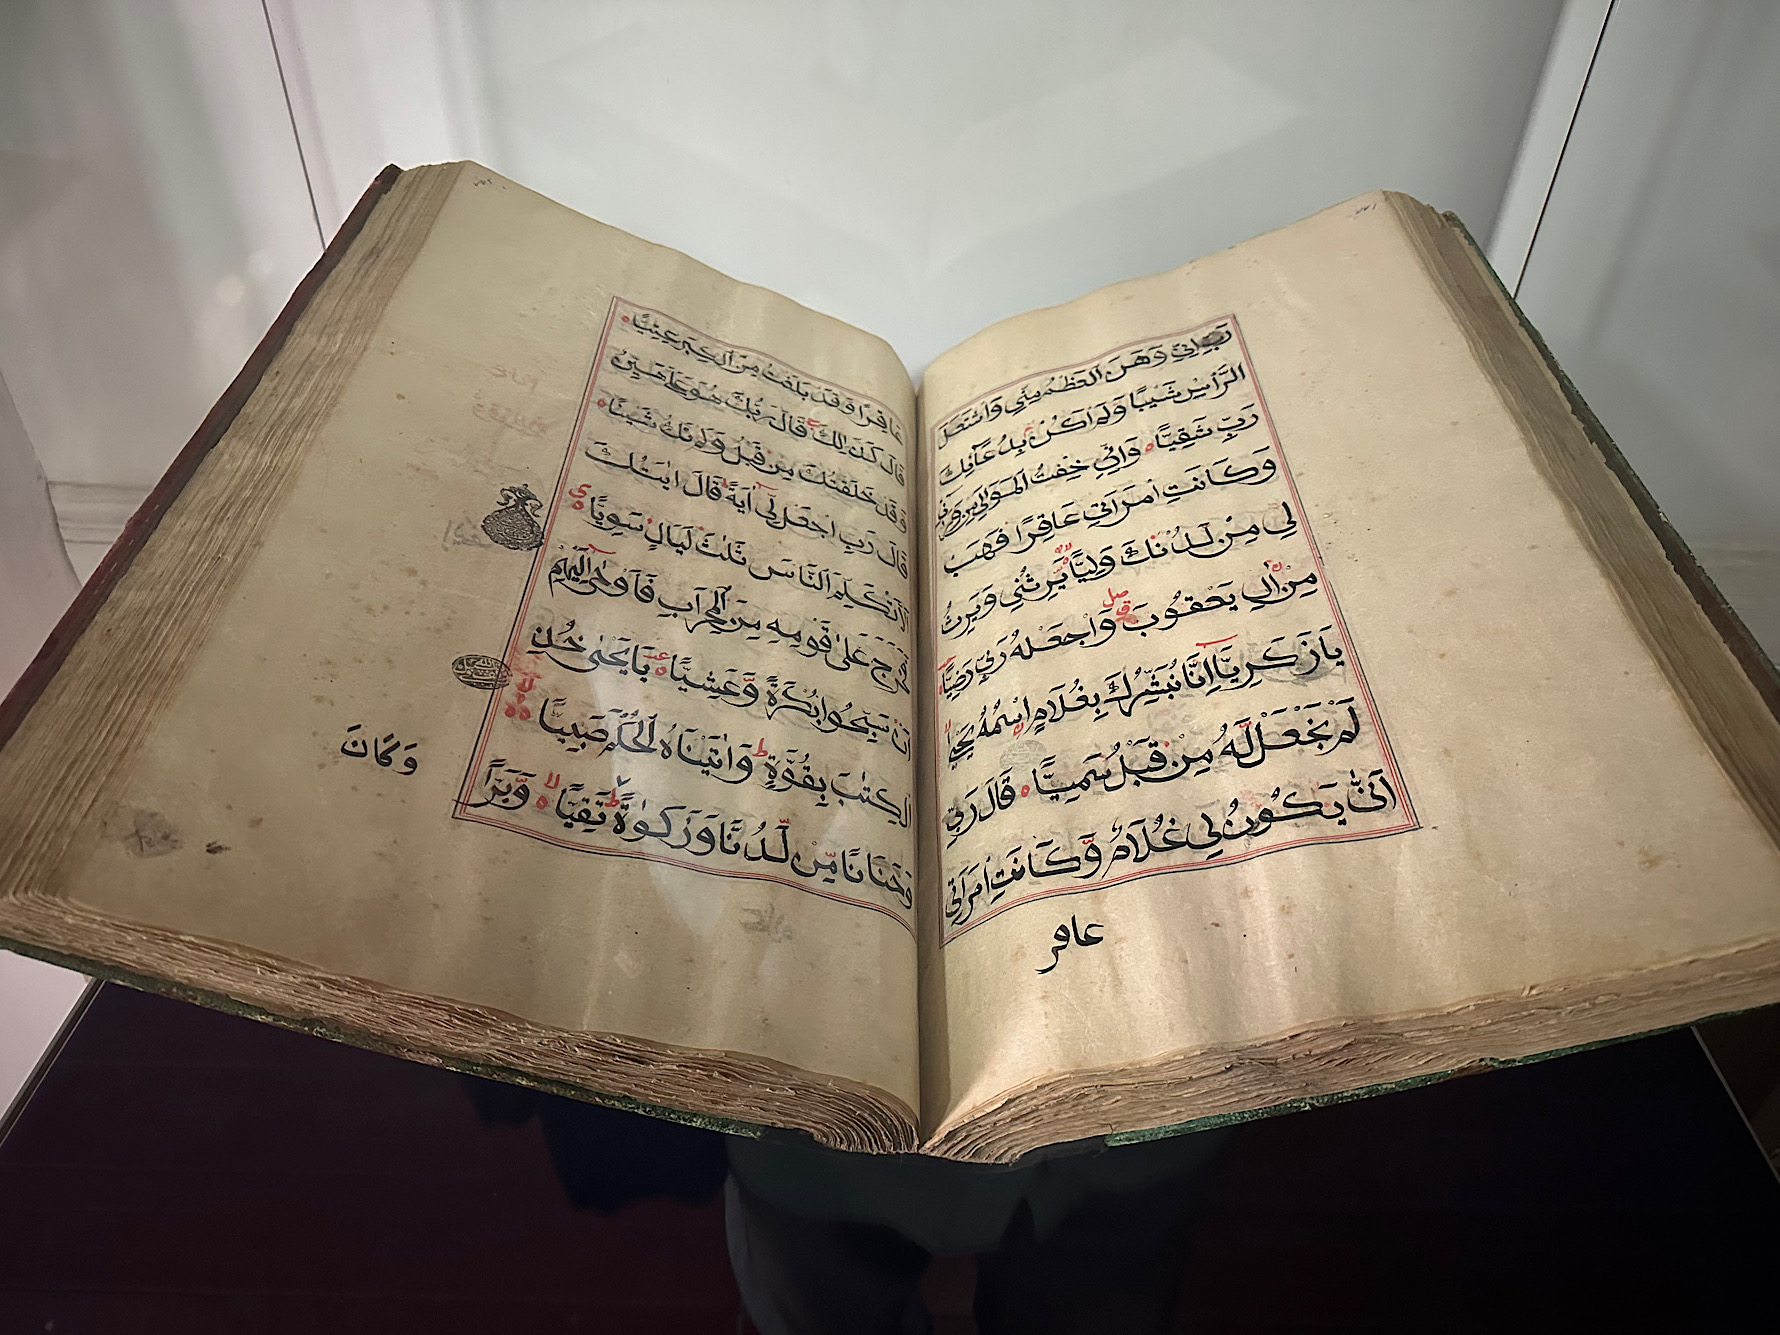 رَبِّ اِنِّي وَهَنَ الْعَظْمُ مِنِّي وَاشْتَعَلَ
الرَّاْسُ شَيْبًا وَلَمْ اَكُنْ بِدُعَآئِكَ
رَبِّ شَقِيًّا وَاِنِّي خِفْتُ الْمَوَالِيَ مِنْ وَرَائِي
وَكَانَتِ امْرَاَتِي عَاقِرًا فَهَبْ
لِي مِنْ لَدُنْكَ وَلِيًّا يَرِثُنِي وَيَرِثُ
مِنْ اٰلِ يَعْقُوبَ وَاجْعَلْهُ رَبِّ رَضِيًّا
يَا زَكَرِيَّا اِنَّا نُبَشِّرُكَ بِغُلَامٍ اسْمُهُ يَحْيٰى
لَمْ نَجْعَلْ لَّهُ مِنْ قَبْلُ سَمِيًّا قَالَ رَبِّ
اَنّٰى يَكُونُ لِي غُلَامٌ وَّكَانَتِ امْرَاَتِي
عاقر
عَاقِرًا وَقَدْ بَلَغْتُ مِنَ الْكِبَرِ عِتِيًّا
قَالَ كَذٰلِكَ قَالَ رَبُّكَ هُوَ عَلَيَّ هَيِّنٌ
وَقَدْ خَلَقْتُكَ مِنْ قَبْلُ وَلَمْ تَكُ شَيْئًا
قَالَ رَبِّ اجْعَلْ لِّي اٰيَةً قَالَ اٰيَتُكَ
اَلَّا تُكَلِّمَ النَّاسَ ثَلٰثَ لَيَالٍ سَوِيًّا
فَخَرَجَ عَلٰى قَوْمِهِ مِنَ الْمِحْرَابِ فَاَوْحٰى اِلَيْهِمْ
اَنْ سَبِّحُوا بُكْرَةً وَّعَشِيًّا يَا يَحْيٰى خُذِ
الْكِتٰبَ بِقُوَّةٍ وَاٰتَيْنَاهُ الْحُكْمَ صَبِيًّا
وَحَنَانًا مِّنْ لَّدُنَّا وَزَكٰوةً تَقِيًّا وَّبَرًّا
وَكَانَ